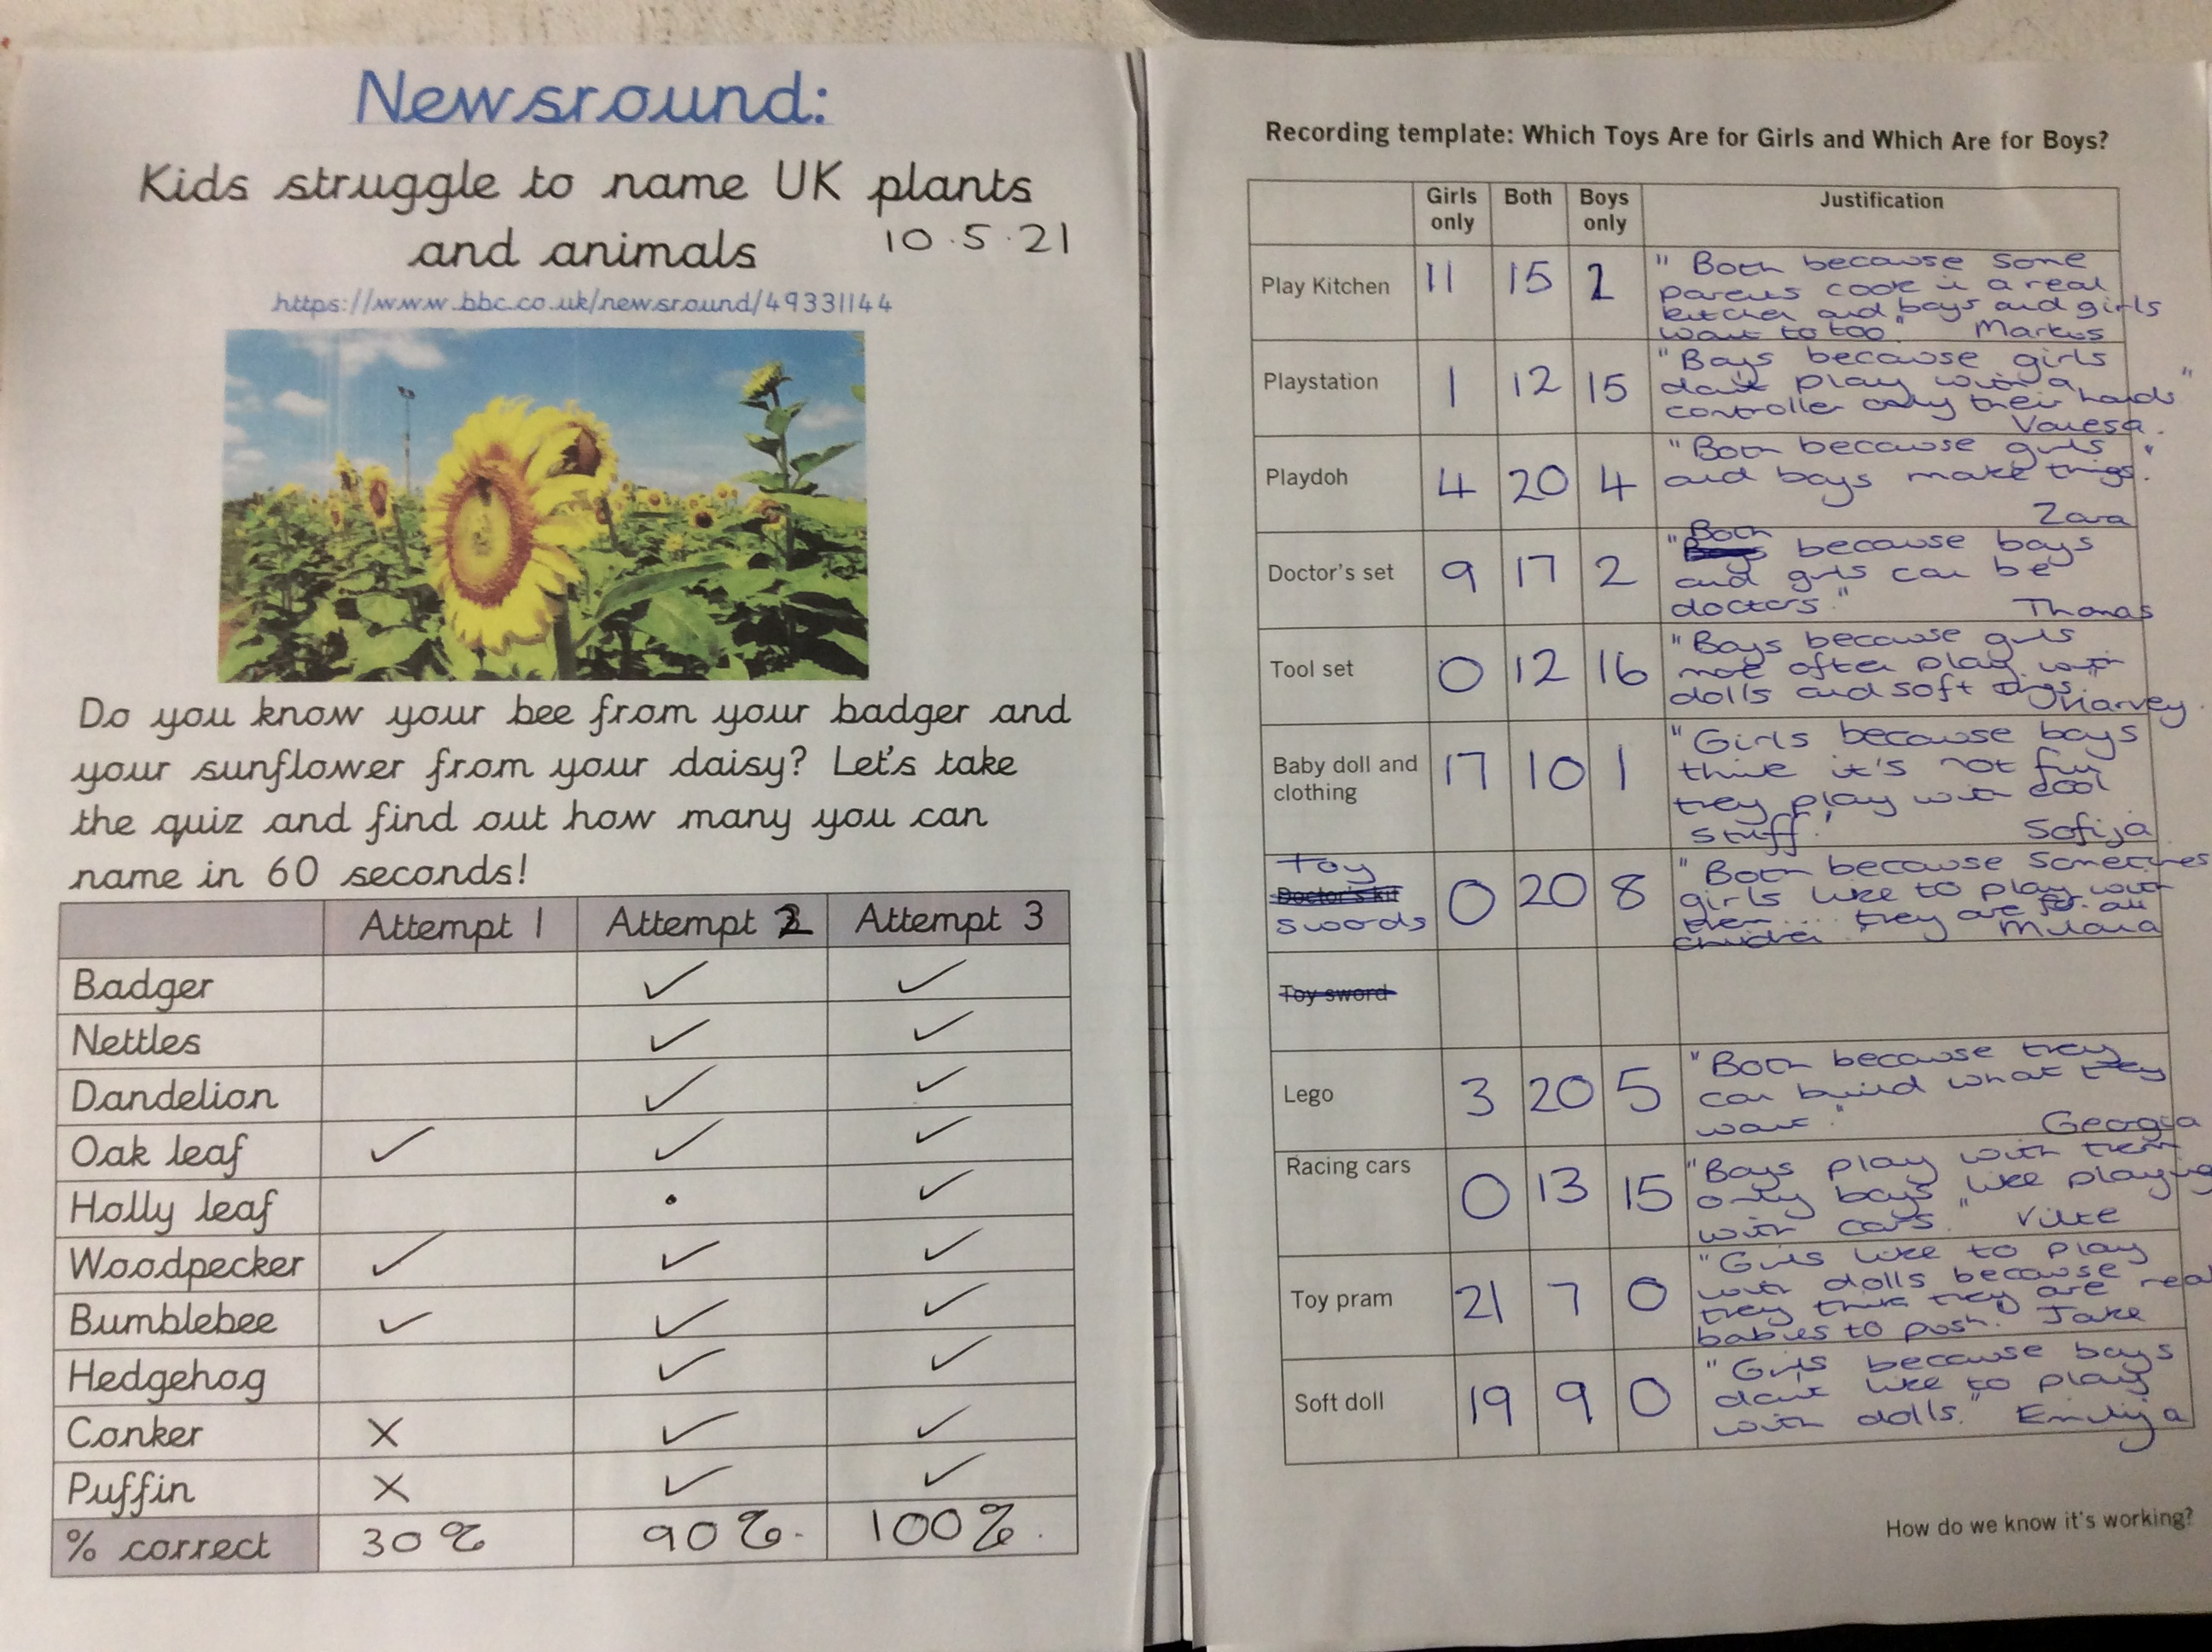 Newsround:
Kids struggle to name UK plants
and animals 10.5.21
https://www.bbc.co.uk/newsround/49331144
Do you know your bee from your badger and
your sunflower from your daisy? Let's take
the quiz and find out how many you can
name in 60 seconds!
Attempt 1 Attempt 2 Attempt 3
Badger ✓ ✓
Nettles ✓ ✓
Dandelion ✓ ✓
Oak leaf ✓ ✓ ✓
Holly leaf • ✓
Woodpecker ✓ ✓ ✓
Bumblebee ✓ ✓ ✓
Hedgehog ✓ ✓
Conker X ✓ ✓
Puffin X ✓ ✓
% correct 30% 90%. 100%.
Recording template: Which Toys Are for Girls and Which Are for Boys?
Girls only Both Boys only Justification
Play Kitchen 11 15 2
"Both because some
parents cook in a real
kitchen and boys and girls
want to too." Markus
Playstation 1 12 15
"Boys because girls
don't play with a
controller only their hands"
Vanesa.
Playdoh 4 20 4
"Both because girls
and boys make things."
Zara
Doctor's set 9 17 2
"Both because boys
and girls can be
doctors." Thomas
Tool set 0 12 16
"Boys because girls
not often play with
dolls and soft things." Harvey
Baby doll and
clothing 17 10 1
"Girls because boys
think it's not fun
they play with cool
stuff." Sofija
Toy
Doctor's kit
swords 0 20 8
"Both because sometimes
girls like to play with
them.... they are for all
children Milana
Toy sword
Lego 3 20 5
"Both because they
can build what they
want." Georgia
Racing cars 0 13 15
"Boys play with them
only boys like playing
with cars." Vilte
Toy pram 21 7 0
"Girls like to play
with dolls because
they think they are real
babies to push. Jake
Soft doll 19 9 0
"Girls because boys
don't like to play
with dolls." Emilija
How do we know it's working?